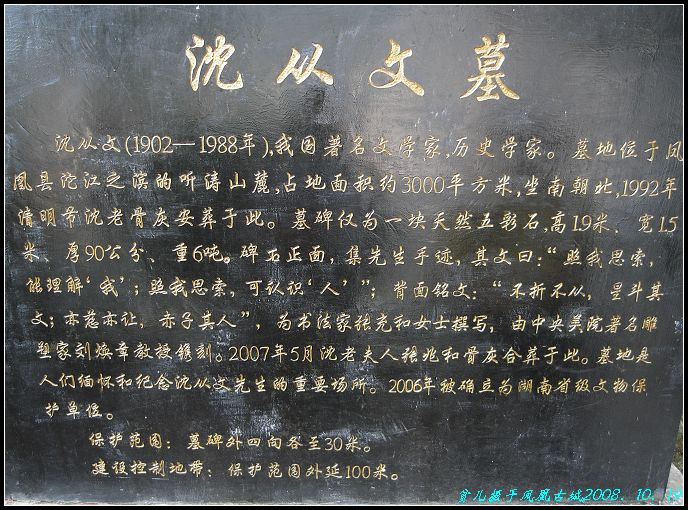 沈从文墓
沈从文(1902—1988年),我国著名文学家,历史学家。墓地位于凤
凰县沱江之滨的听涛山麓,占地面积约3000平方米,坐南朝北,1992年
清明节沈老骨灰安葬于此。墓碑仅为一块天然五彩石,高1.9米.宽1.5
米、厚90公分、重6吨。碑石正面,集先生手迹,其文曰:“照我思索,
能理解‘我’;照我思索,可认识‘人’”;背面铭文:“不折不从,星斗其
文;亦慈亦让,赤子其人”,为书法家张充和女士撰写,由中央美院著名雕
塑家刘焕章教授镌刻。2007年5月沈老夫人张兆和骨灰合葬于此。墓地是
人们缅怀和纪念沈从文先生的重要场所。2006年被确立为湖南省级文物保
护单位。
保护范围:墓碑外四向各至30米。
建设控制地带:保护范围外延100米。
贫儿摄于凤凰古城2008.10.